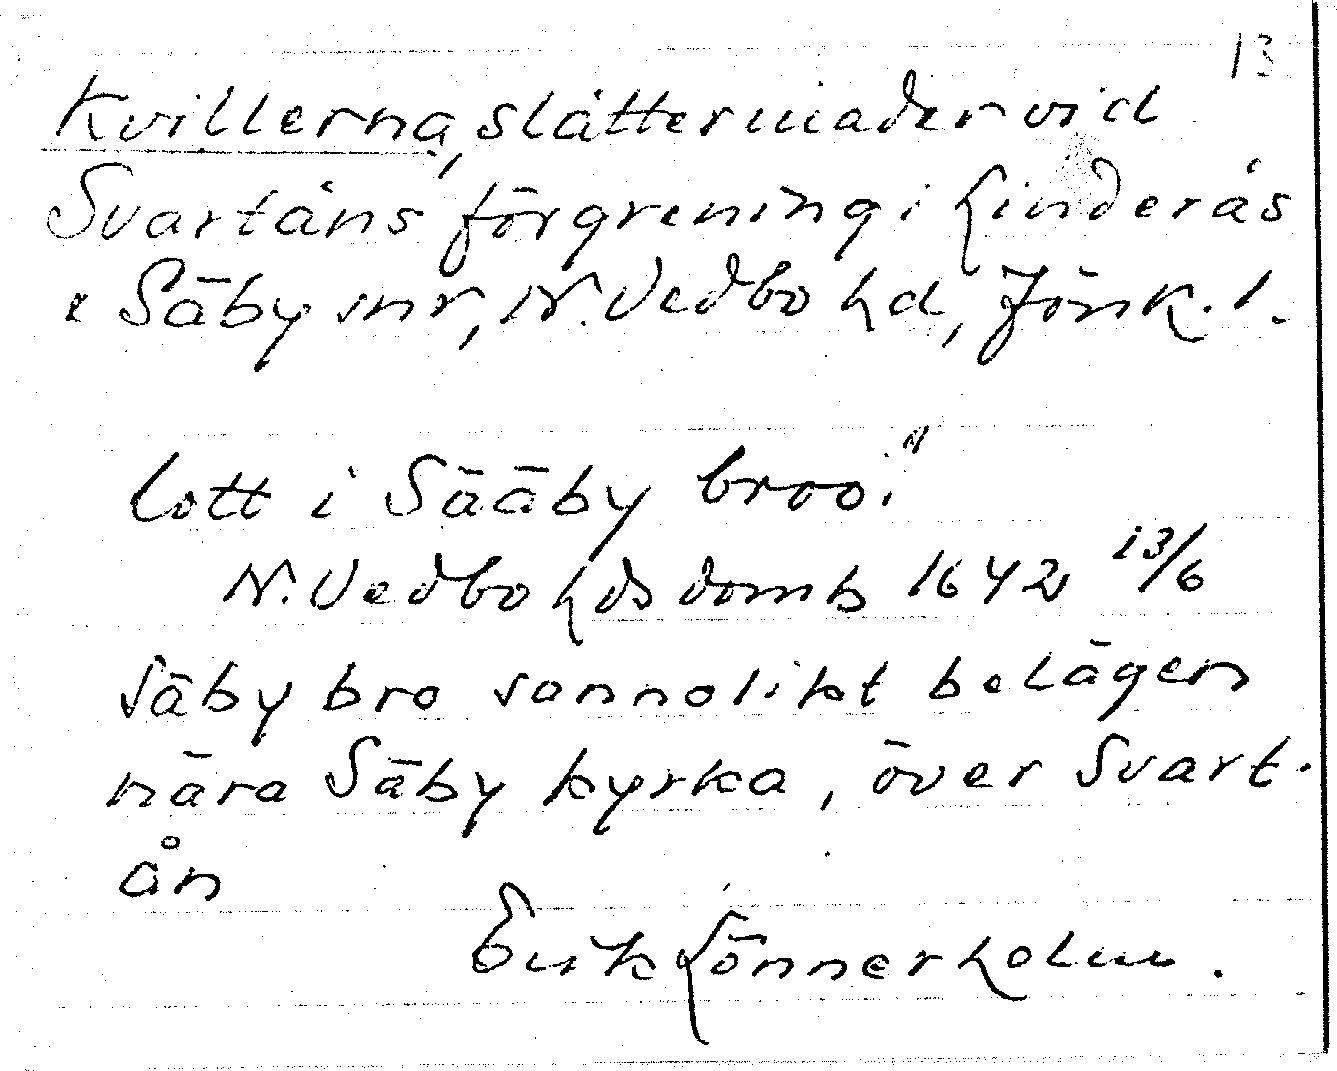 13
Kvillerna, slåttermader vid
Svartåns förgrening i Linderås
i Säby snr, N. Vedbo hd, Jönk. l.
lott i Sääby broo."
N. Vedbo hds domb 1642 13/6
Säby bro sannolikt belägen
nära Säby kyrka, över Svart-
ån
Erik Lönnerholm.